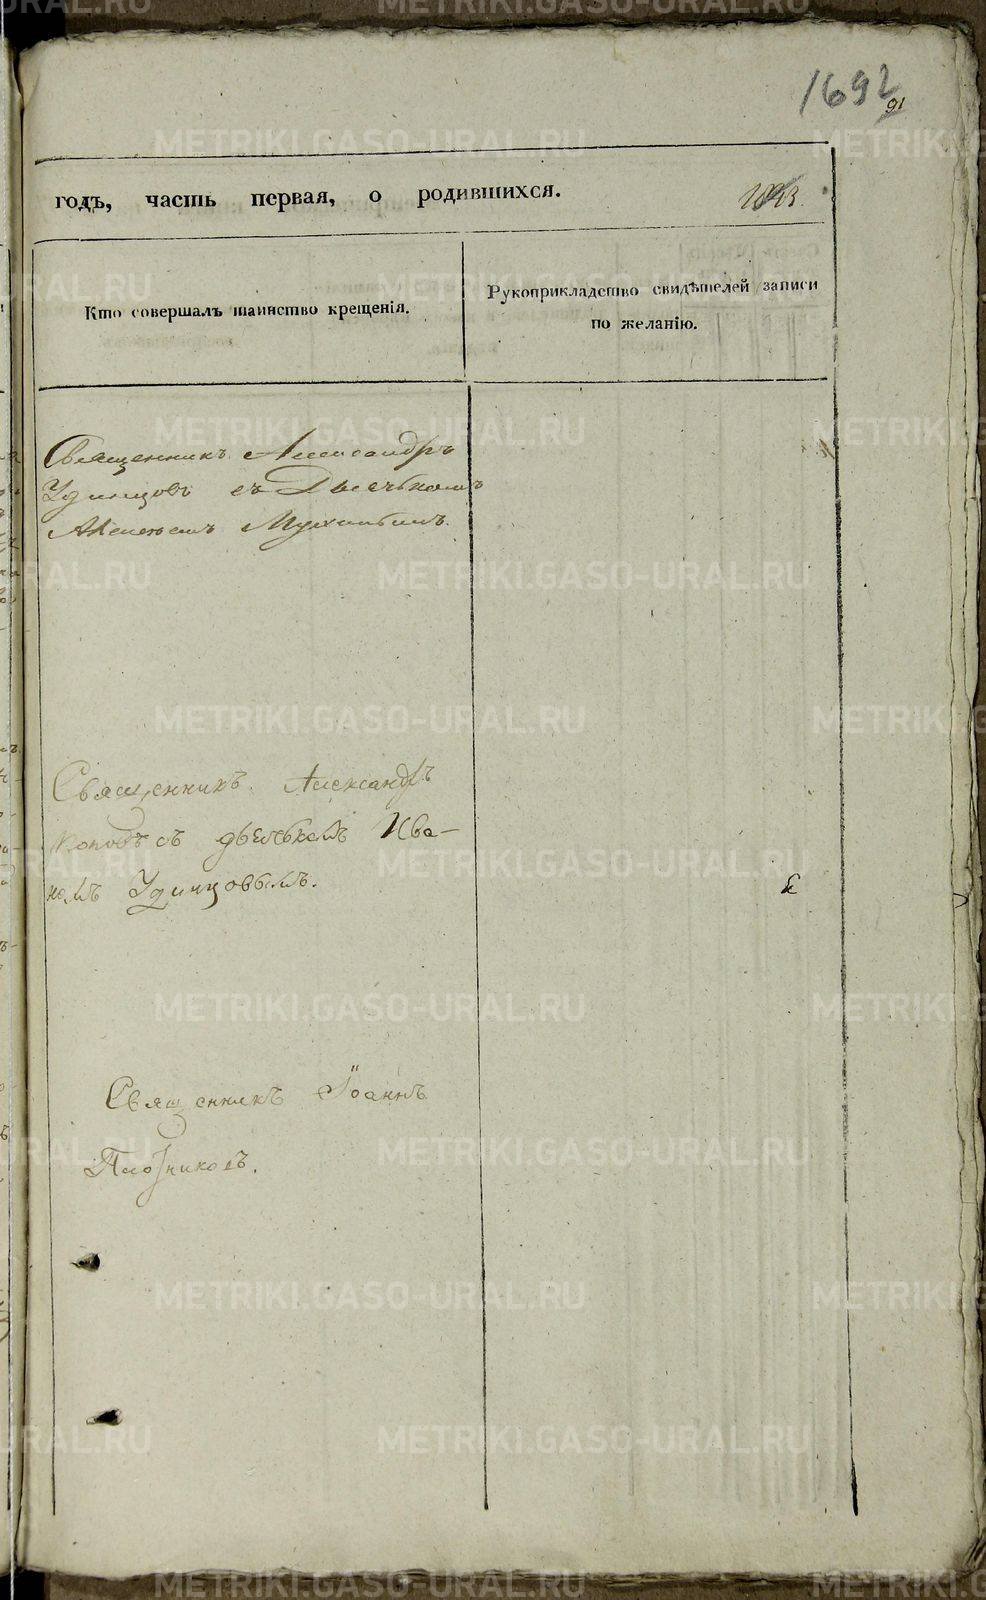 1692
91
годъ, часть первая, о родившихся.
Кто совершалъ таинство крещенія.
Рукоприкладство свидѣтелей записи
по желанію.
Священникъ Александръ
Удинцовъ съ Дьячкомъ
Священникъ Александръ
Поповъ съ дьячкомъ Ива-
номъ Удинцовымъ.
Священникъ Іоаннъ
Плотниковъ.
METRIKI.GASO-URAL.RU